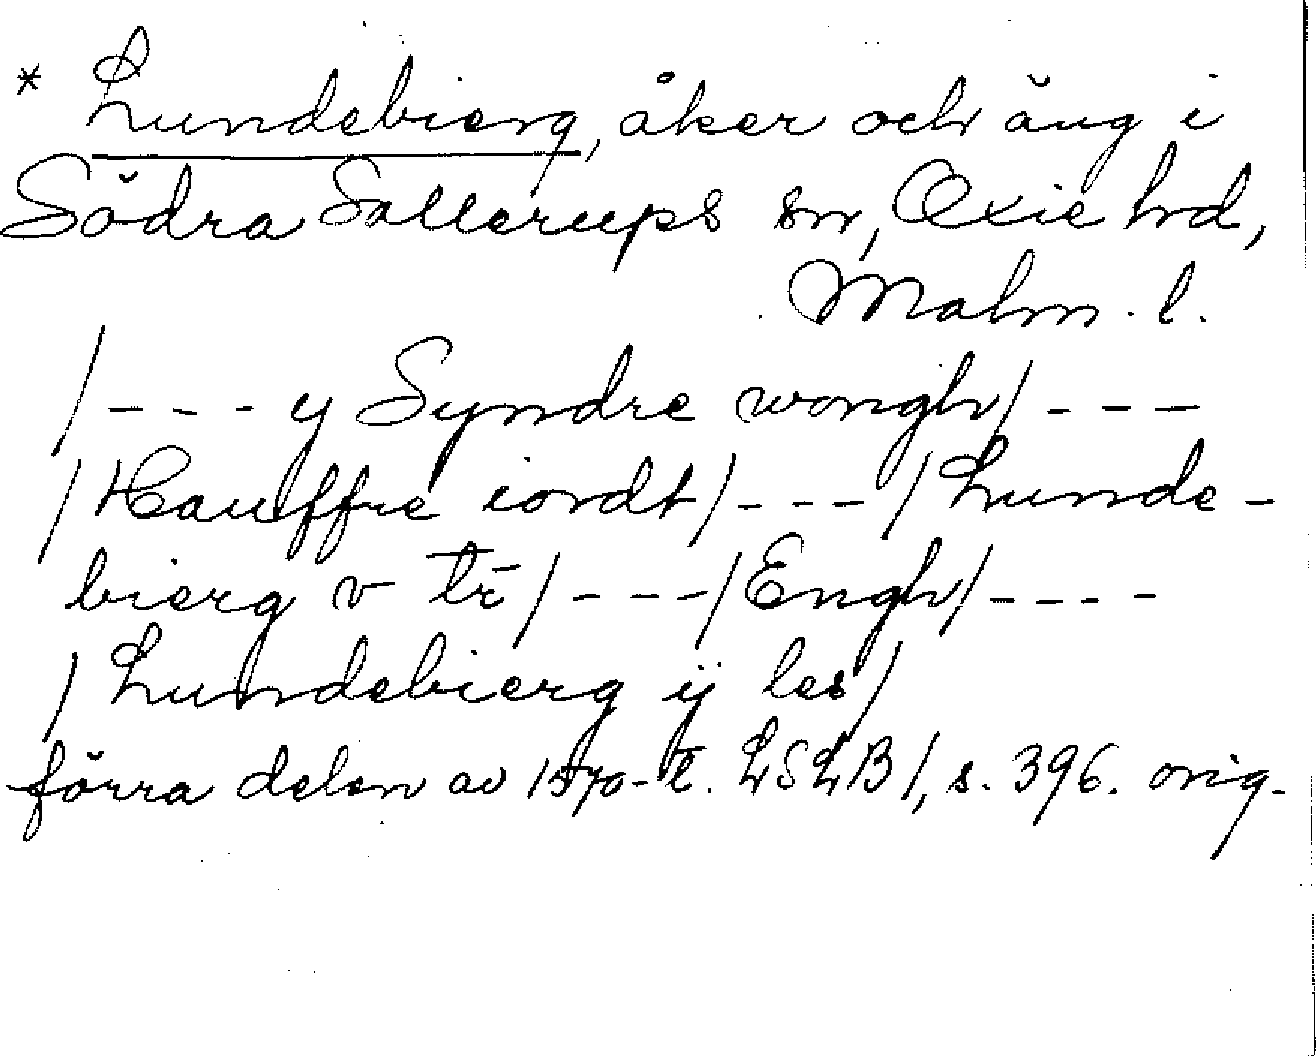 * Lundebierg, åker och äng i
Södra Sallerups sn, Oxie hd,
Malm. l.
/--- y Syndre wongh/ ---
/Hauffre iordt/---/Lunde-
bierg v- tr̄/---/Engh/----
/Lundebierg ÿ les/
förra delen av 1570-t. LSLB/, s. 396. orig.